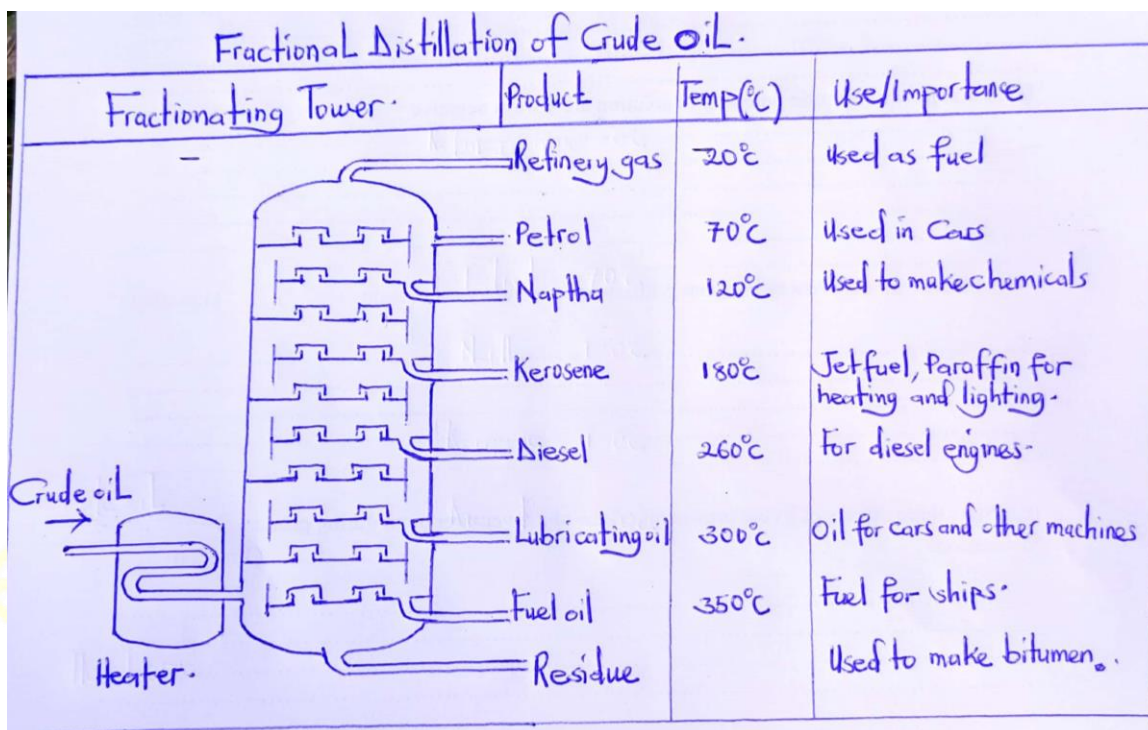 Fractional Distillation of Crude Oil.
Fractionating Tower. Product Temp(°C) Use/Importance
Refinery gas 20°C Used as fuel
Petrol 70°C Used in Cars
Naptha 120°C Used to make chemicals
Kerosene 180°C Jet fuel, Paraffin for
heating and lighting.
Diesel 260°C For diesel engines.
Crude oil
Lubricating oil 300°C Oil for cars and other machines
Fuel oil 350°C Fuel for ships.
Heater. Residue Used to make bitumen.